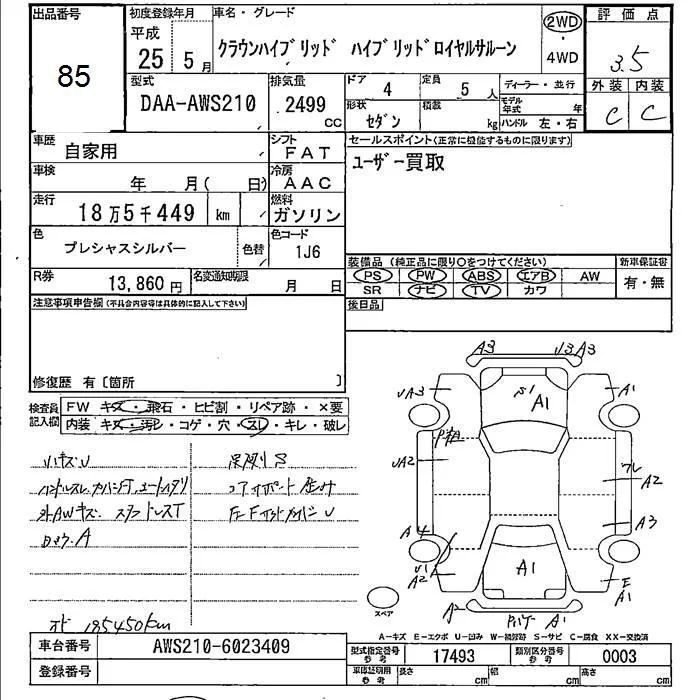 出品番号
85
初度登録年月
平成
25年 5月
車名・グレード
クラウンハイブリッド ハイブリッドロイヤルサルーン
2WD
・
4WD
評価点
3.5
外装 内装
C C
型式
DAA-AWS210
排気量
2499
CC
ドア
4
定員
5 人
形状
セダン
積載
kg
ディーラー・並行
モデル年式 年
ハンドル 左・右
車歴
自家用
シフト
FAT
車検
年 月( 日)
冷房
AAC
走行
18万5千449 km
燃料
ガソリン
色
プレシャスシルバー
色替
色コード
1J6
R券
13,860円
名変通知期限
月 日
セールスポイント(正常に機能するものに限ります)
ユーザー買取
装備品(純正品に限り○をつけてください)
PS PW ABS エアB AW
SR ナビ TV カワ
新車保証書
有・無
後日品
注意事項申告欄(不具合内容等は具体的に記入して下さい)
修復歴 有〔箇所 〕
検査員記入欄
FW キズ・飛石・ヒビ割・リペア跡・×要
内装 キズ・汚レ・コゲ・穴・スレ・キレ・破レ
小キズU
外AWキズ
A
S
U
メーター 185450km
A3 U3 A3
UA3 S1 A1 A1
UA2 ワレ A2
A4 A3
U1 A2 A1 E A1
A2 A1
スペア
A-キズ E-エクボ U-凹み W-補修跡 S-サビ C-腐食 XX-交換済
車台番号
AWS210-6023409
登録番号
型式指定番号
参考
17493
類別区分番号
参考
0003
車庫証明用
参考
長さ cm 幅 cm 高さ cm